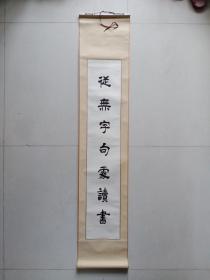 從無字句處讀書